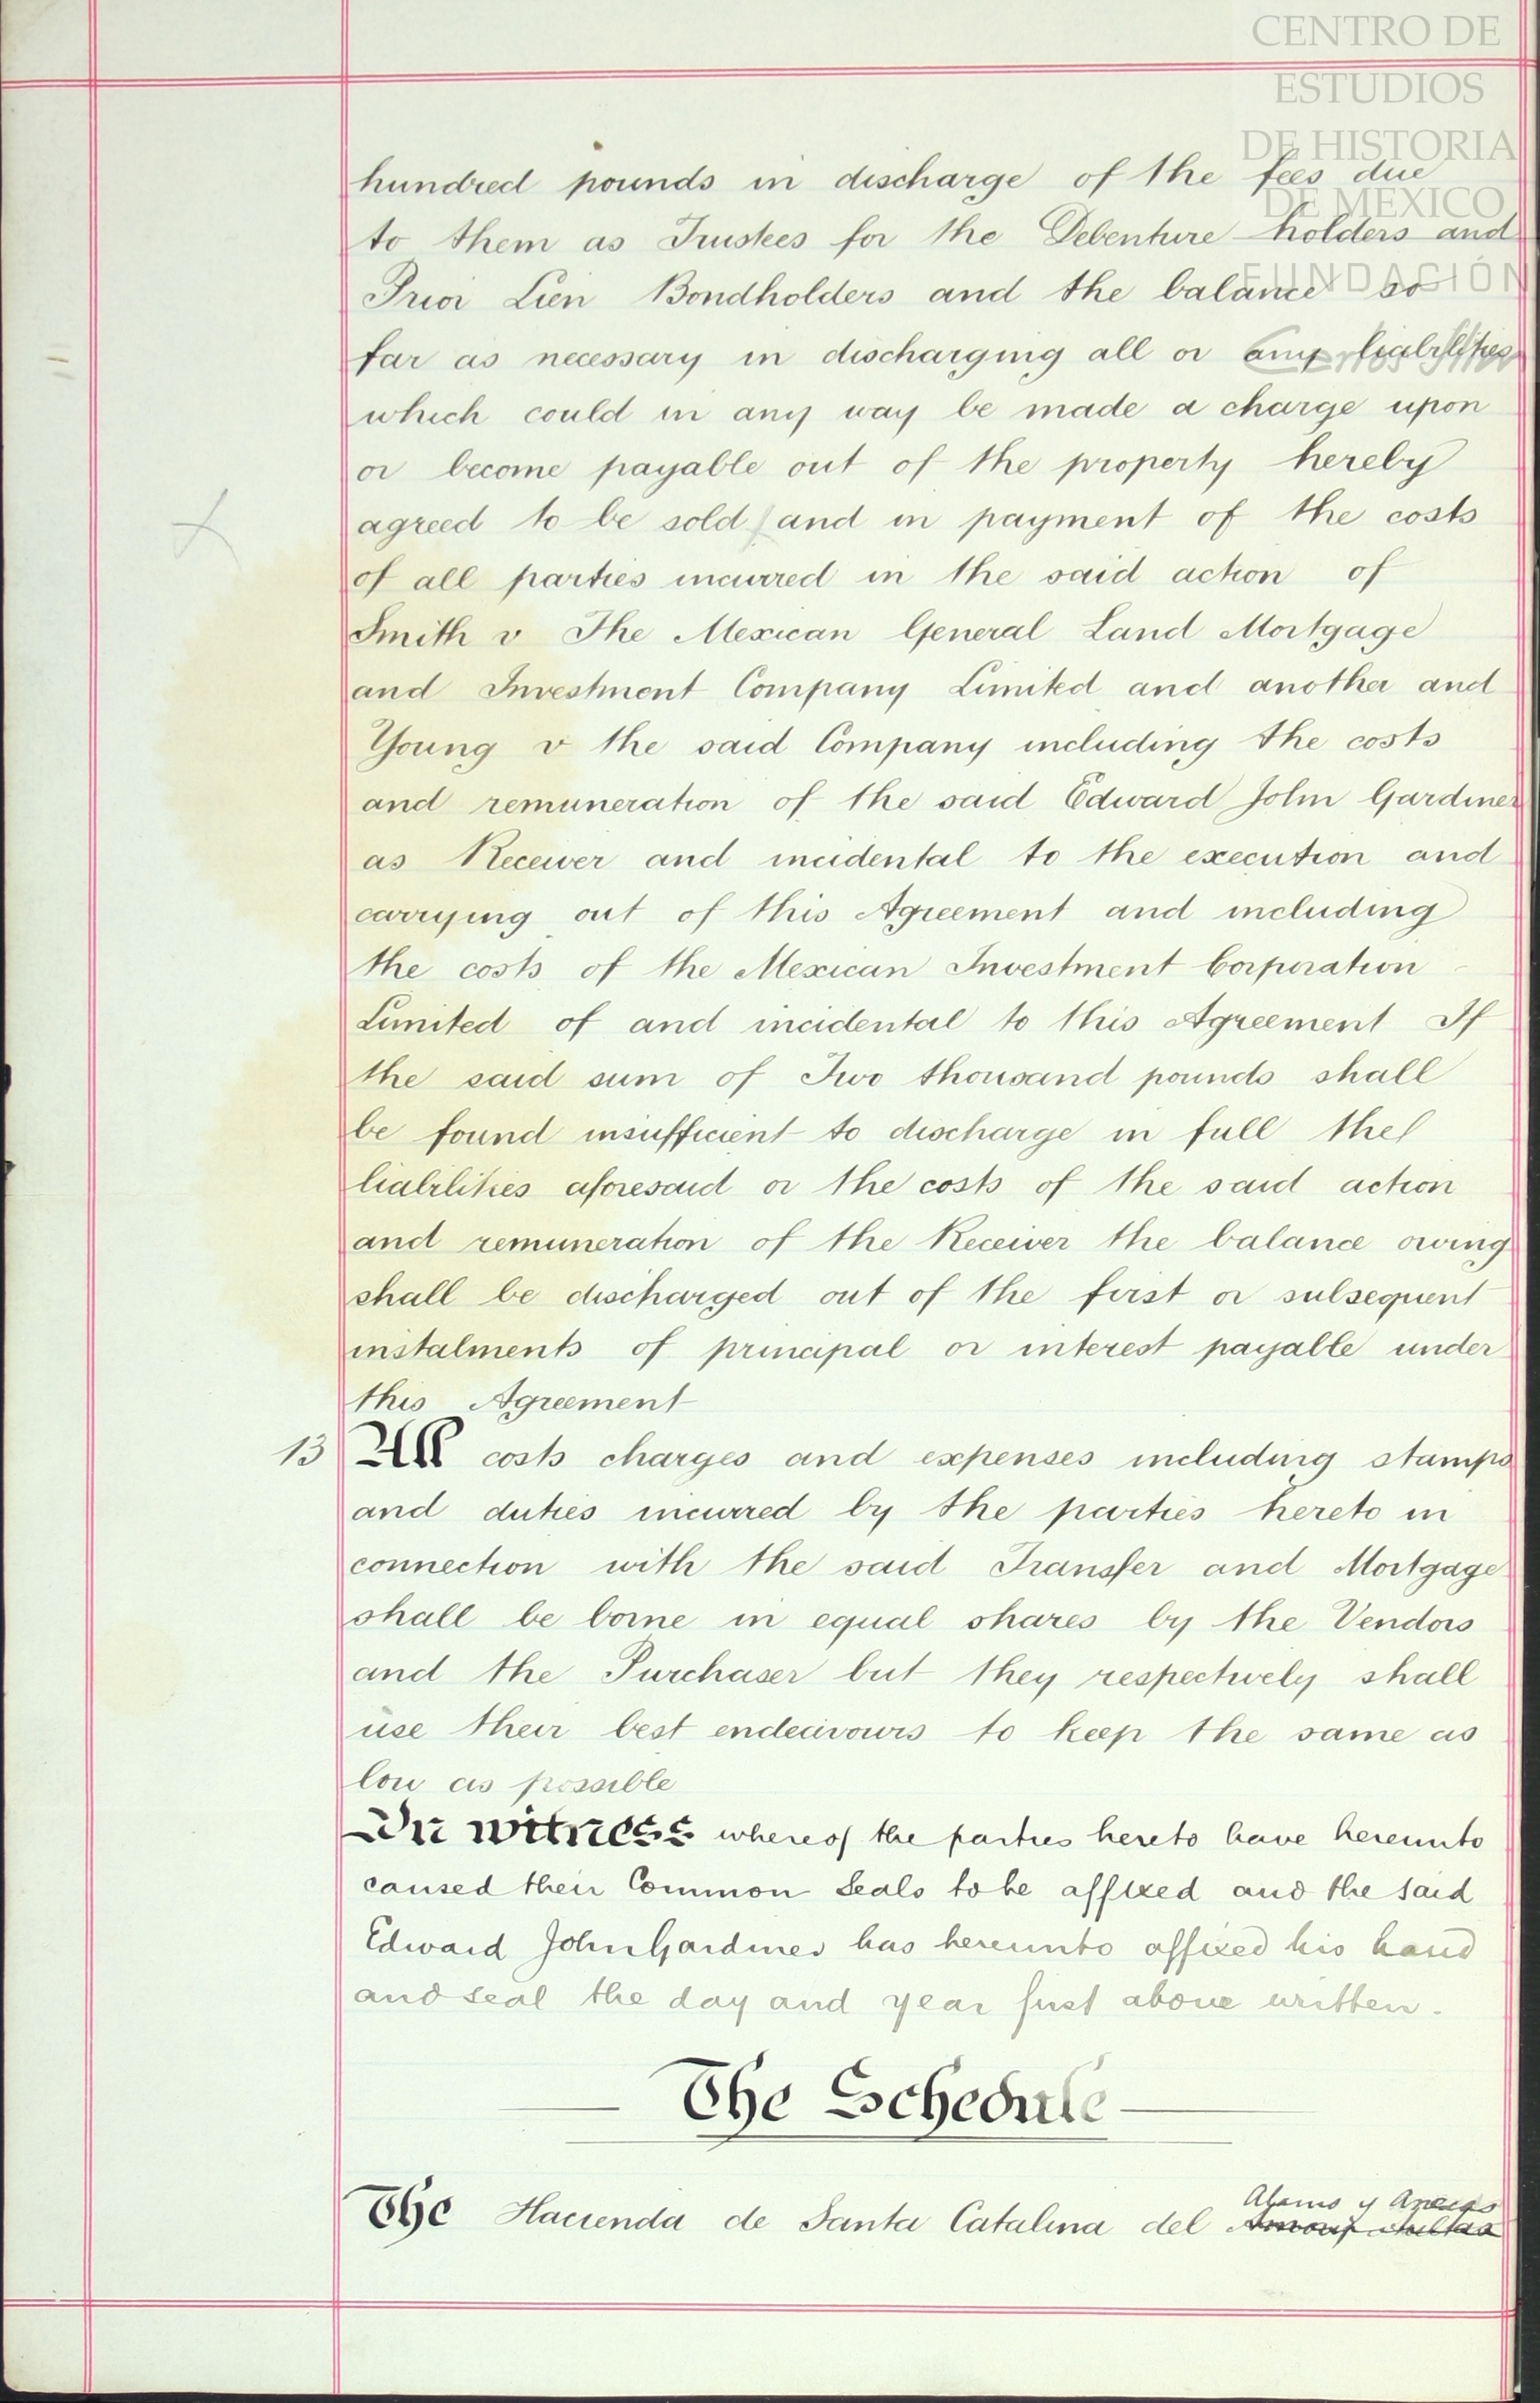 CENTRO DE
ESTUDIOS
DE HISTORIA
DE MEXICO
FUNDACIÓN
hundred pounds in discharge of the fees due
to them as Trustees for the Debenture holders and
Prior Lien Bondholders and the balance so
far as necessary in discharging all or any liabilities
which could in any way be made a charge upon
or become payable out of the property hereby
agreed to be sold / and in payment of the costs
of all parties incurred in the said action of
Smith v The Mexican General Land Mortgage
and Investment Company Limited and another and
Young v the said Company including the costs
and remuneration of the said Edward John Gardiner
as Receiver and incidental to the execution and
carrying out of this Agreement and including
the costs of the Mexican Investment Corporation
Limited of and incidental to this Agreement If
the said sum of Two thousand pounds shall
be found insufficient to discharge in full the
liabilities aforesaid or the costs of the said action
and remuneration of the Receiver the balance owing
shall be discharged out of the first or subsequent
instalments of principal or interest payable under
this Agreement
13 All costs charges and expenses including stamps
and duties incurred by the parties hereto in
connection with the said Transfer and Mortgage
shall be borne in equal shares by the Vendors
and the Purchaser but they respectively shall
use their best endeavours to keep the same as
low as possible
In witness whereof the parties hereto have hereunto
caused their Common Seals to be affixed and the said
Edward John Gardiner has hereunto affixed his hand
and seal the day and year first above written.
The Schedule
Alamo y Anexas
The Hacienda de Santa Catalina del